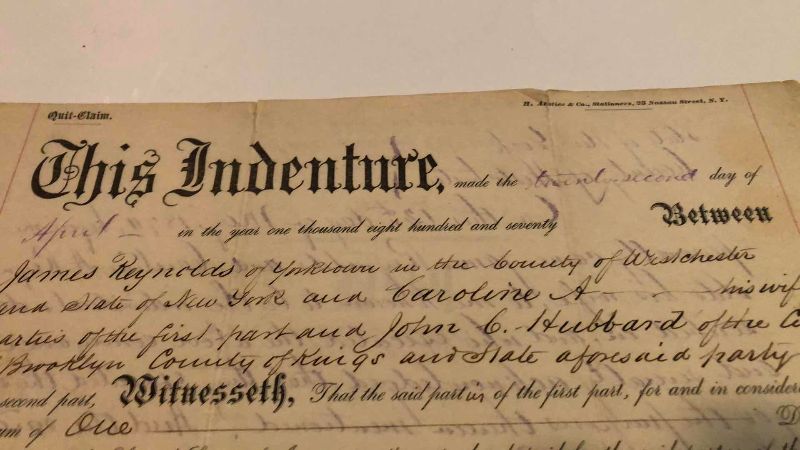 Quit-Claim.
H. Anstice & Co., Stationers, 25 Nassau Street, N. Y.
This Indenture, made the twenty-second day of
April in the year one thousand eight hundred and seventy Between
James Reynolds of Yorktown in the County of Westchester
and State of New York and Caroline A his wif
arties of the first part and John C. Hubbard of the C
Brooklyn County of Kings and State aforesaid party
second part, Witnesseth, That the said parties of the first part, for and in consider
um of One D